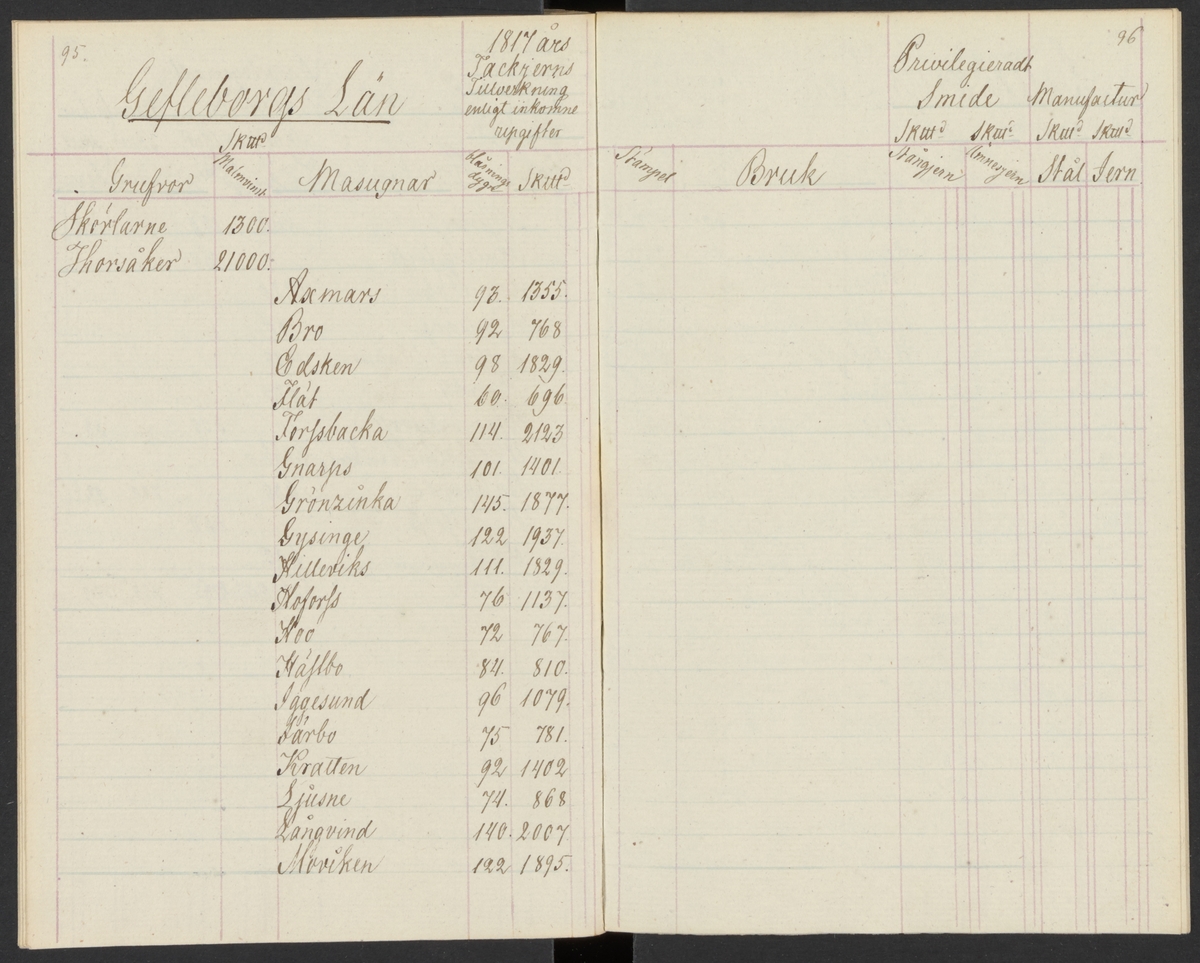 95.
Gefleborgs Län
1817 års
Tackjerns
Tillverkning
enligt inkomne
upgifter
Skttd
Grufvor Malmvinst Masugnar blåsnings dygn Skttd
Skörlarne 1300.
Thorsåker 21000.
Axmars 93. 1355.
Bro 92 768
Edsken 98 1829.
Flåt 60. 696
Forssbacka 114. 2123
Gnarps 101. 1401.
Grönzinka 145. 1877.
Gysinge 122 1937.
Hilleviks 111. 1829.
Hoforss 76 1137.
Hoo 72 767.
Håstbo 84. 810.
Iggesund 96 1079.
Järbo 75 781.
Kratten 92 1402
Ljusne 74. 868
Långvind 140. 2007
Moviken 122 1895.
96
Privilegieradt
Smide Manufactur
Skttd Skttd Skttd Skttd
Stämpel Bruk Stångjern Ämnesjern Stål Jern